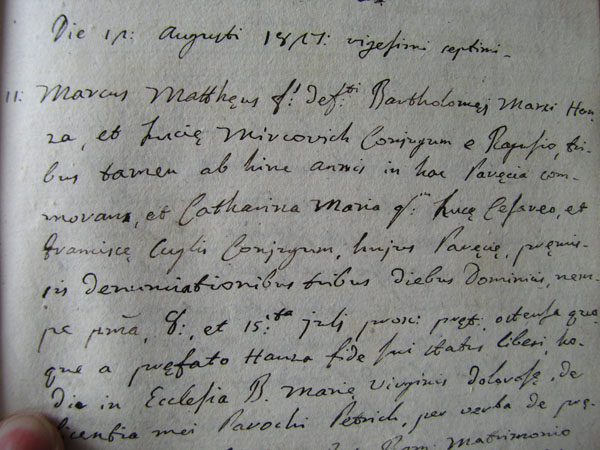 Die 1[?]: Augusti 1827: vigesimi septimi.
11: Marcus Matthęus f.s def.ti Bartholomęi Marci Han-
za, et Lucię Mircovich Conjugum e Ragusio, tri-
bus tamen ab hinc annis in hac Paręcia com-
morans, et Catharina Maria q.m Lucę Cesareo, et
Franciscę Cuylis Conjugum, hujus Paręcię, pręmis-
sis denunciationibus tribus diebus Dominicis, nem-
pe pma, 8:, et 15:ta julj proxi pręt: ostensa quo-
que a pręfato Hanza fide sui status liberi, ho-
die in Ecclesia B. Marię Virginis dolorosę, de
licentia mei Parochi Petrich, per verba de prę-
Rom: Matrimonio